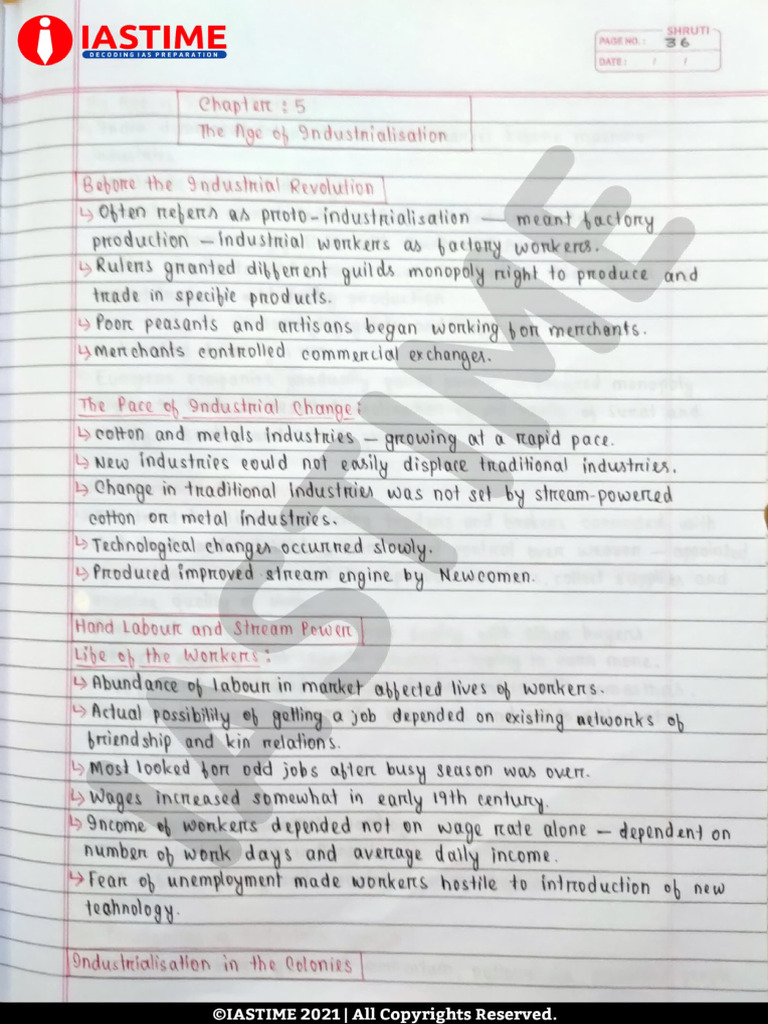 IASTIME
DECODING IAS PREPARATION
SHRUTI
PAGE NO.: 36
DATE: / /
Chapter : 5
The Age of Industrialisation
Before the Industrial Revolution
↳ Often refers as proto-industrialisation — meant factory
production – Industrial workers as factory workers.
↳ Rulers granted different guilds monopoly right to produce and
trade in specific products.
↳ Poor peasants and artisans began working for merchants.
↳ Merchants controlled commercial exchanges.
The Pace of Industrial Change:
↳ cotton and metals industries – growing at a rapid pace.
↳ New industries could not easily displace traditional industries.
↳ Change in traditional industries was not set by stream-powered
cotton or metal industries.
↳ Technological changes occurred slowly.
↳ Produced improved stream engine by Newcomen.
Hand Labour and Stream Power
Life of the Workers:
↳ Abundance of labour in market affected lives of workers.
↳ Actual possibility of getting a job depended on existing networks of
friendship and kin relations.
↳ Most looked for odd jobs after busy season was over.
↳ Wages increased somewhat in early 19th century.
↳ Income of workers depended not on wage rate alone – dependent on
number of work days and average daily income.
↳ Fear of unemployment made workers hostile to introduction of new
technology.
Industrialisation in the Colonies
IASTIME
©IASTIME 2021 | All Copyrights Reserved.